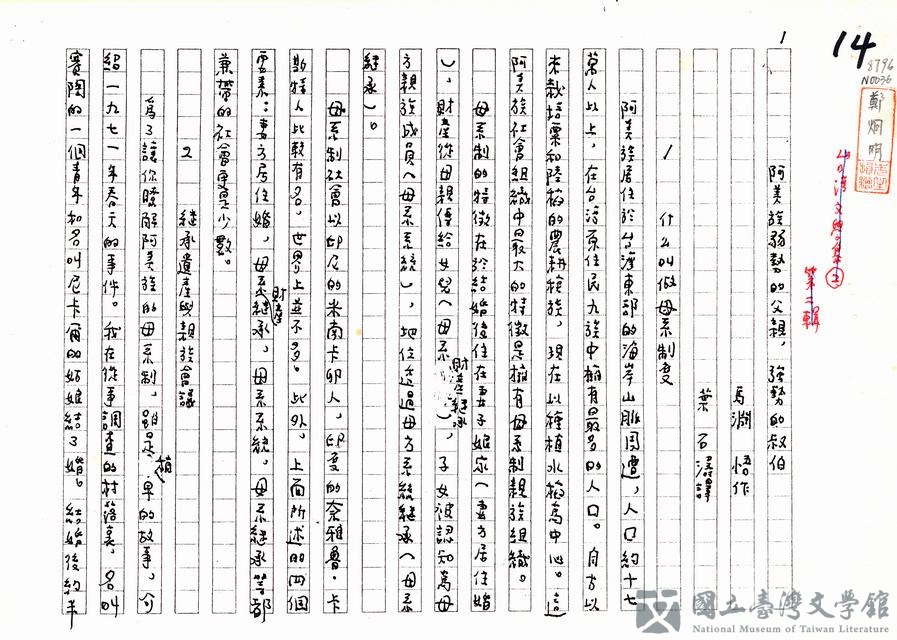 1
14
8796
N0036
鄭炯明
台灣文學集②
第二輯
阿美族弱勢的父親,強勢的叔伯
馬淵 悟作
葉石濤譯
1 什么叫做母系制度
阿美族居住於台灣東部的海岸山脈周遭,人口約十七
萬人以上,在台灣原住民九族中擁有最多的人口。自古以
來栽培粟和陸稻的農耕種族,現在以種植水稻為中心。這
阿美族社會組織中最大的特徵是擁有母系制親族組織。
母系制的特徵在於結婚後住在妻子娘家(妻方居住婚
),財產從母親傳給女兒(母系財產繼承),子女被認知為母
方親族成員(母系系統),地位透過母方系統繼承(母系
繼承)。
母系制社會以印尼的米南卡卯人,印度的奈雅魯·卡
斯特人比較有名,世界上並不多。此外,上面所述的四個
要素:妻方居住婚,母系財產繼承,母系系統,母系繼承等都
兼帶的社會更是少數。
2 繼承遺產與親族會議
為了讓你瞭解阿美族的母系制,雖是簡單的故事,介
紹一九七一年春天的事件。我在從事調查的村落裏,名叫
賓陶的一個青年和名叫尼卡爾的姑娘結了婚。結婚後約半
國立臺灣文學館
National Museum of Taiwan Literature